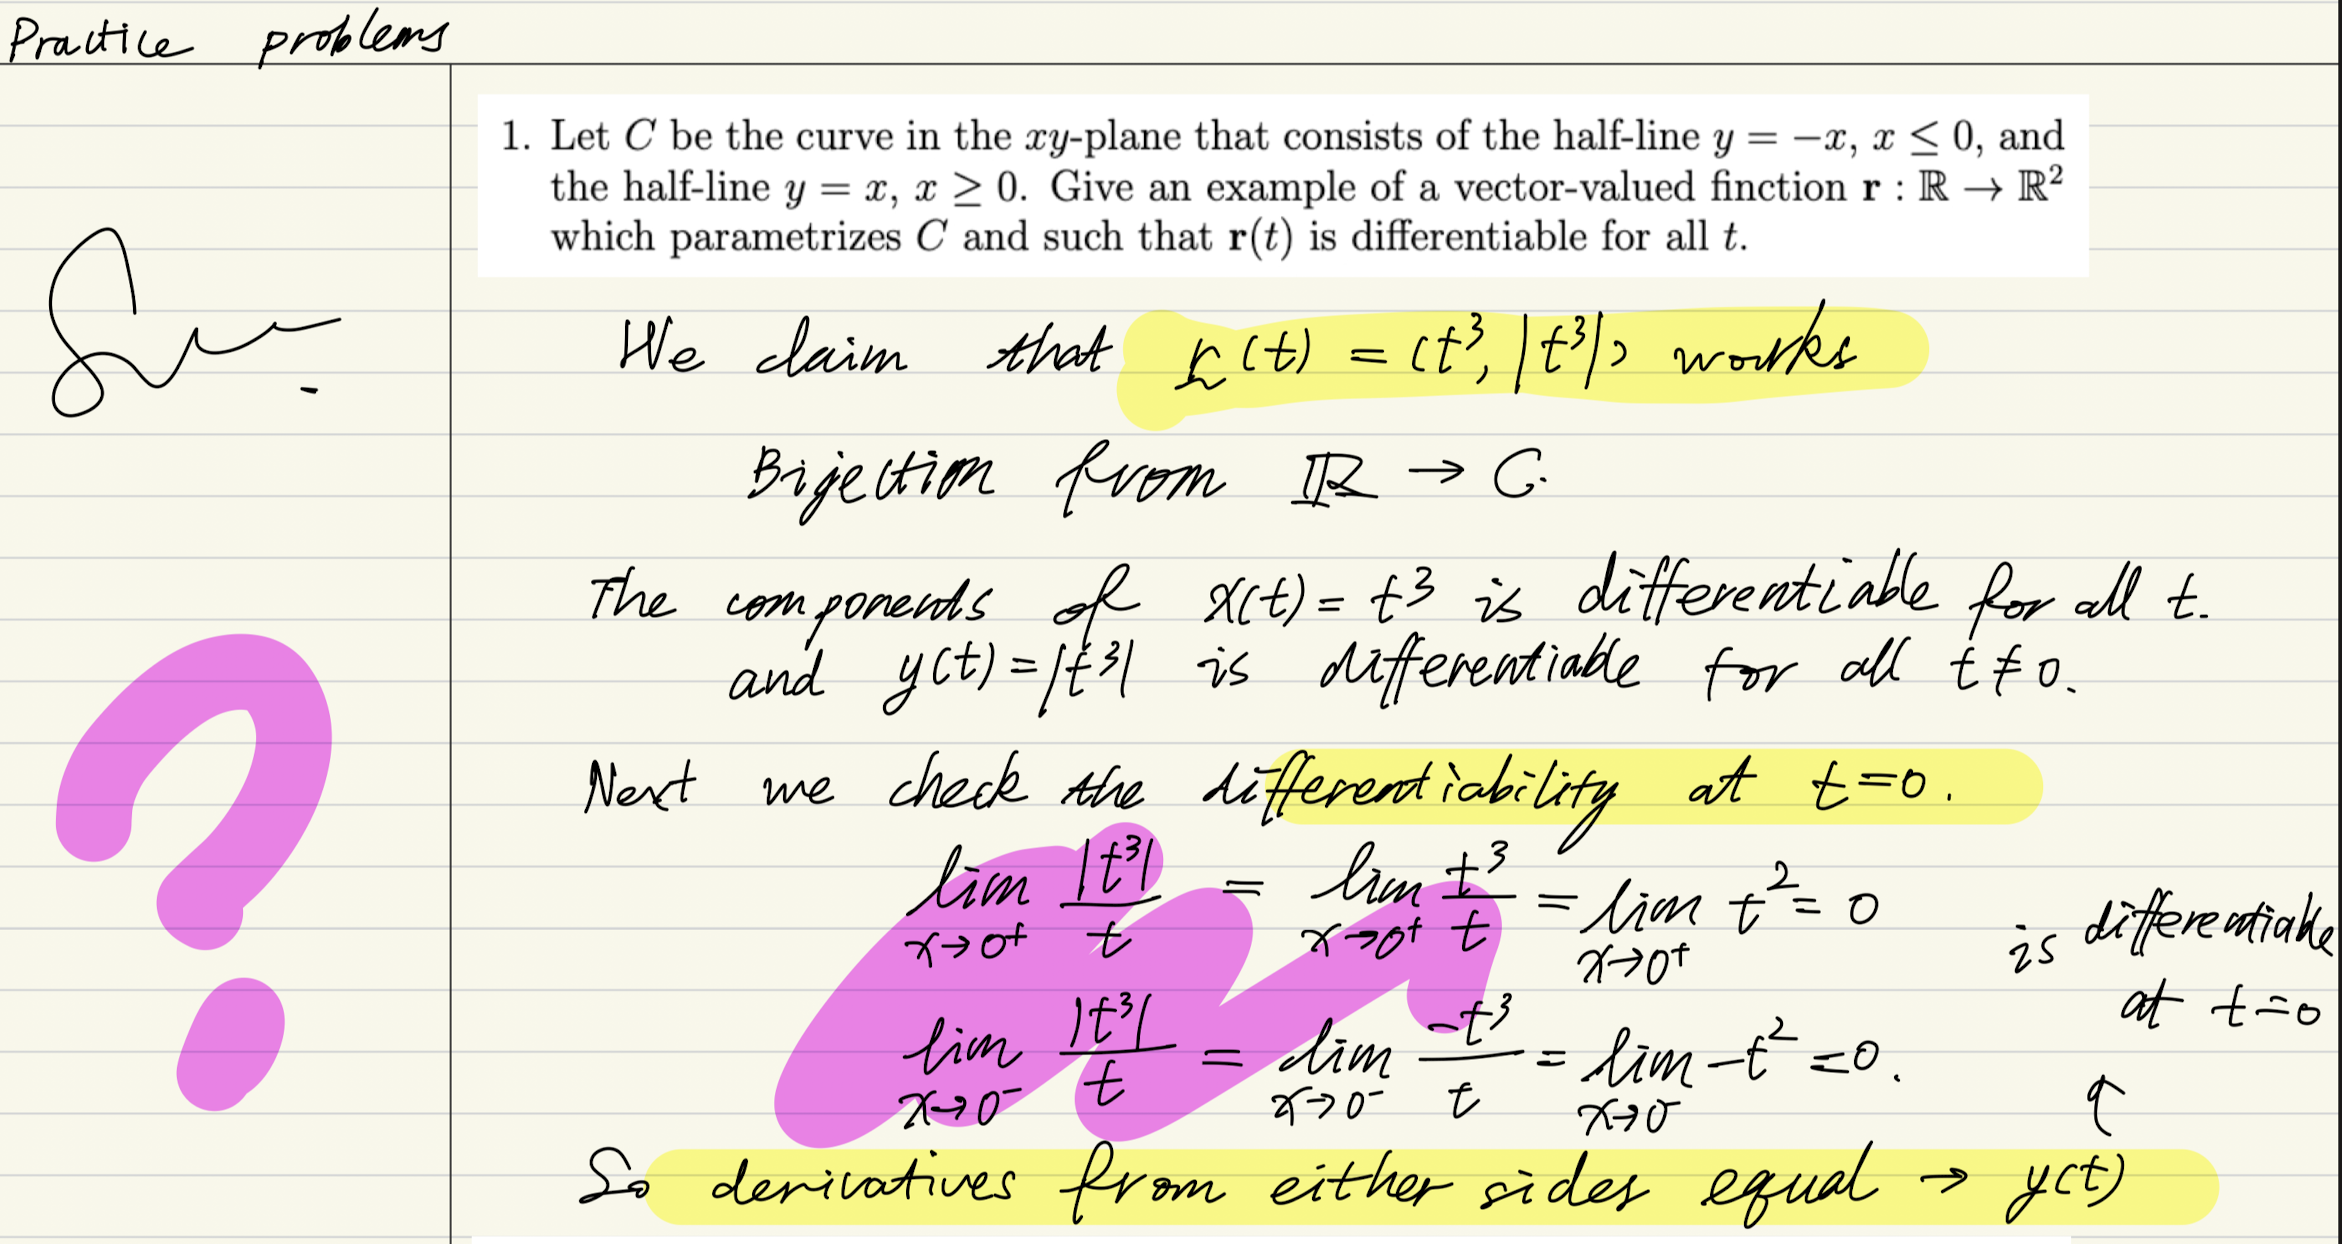 Practice problems
1. Let C be the curve in the xy-plane that consists of the half-line y = −x, x ≤ 0, and
the half-line y = x, x ≥ 0. Give an example of a vector-valued finction r : ℝ → ℝ²
which parametrizes C and such that r(t) is differentiable for all t.
We claim that r(t) = (t³, |t³|) works
Bijection from ℝ → C.
The components of x(t) = t³ is differentiable for all t.
and y(t) = |t³| is differentiable for all t ≠ 0.
Next we check the differentiability at t=0.
lim x→0⁺ |t³|/t = lim x→0⁺ t³/t = lim x→0⁺ t² = 0
lim x→0⁻ |t³|/t = lim x→0⁻ -t³/t = lim x→0⁻ -t² = 0.
So derivatives from either sides equal → y(t)
is differentiable
at t=0
?